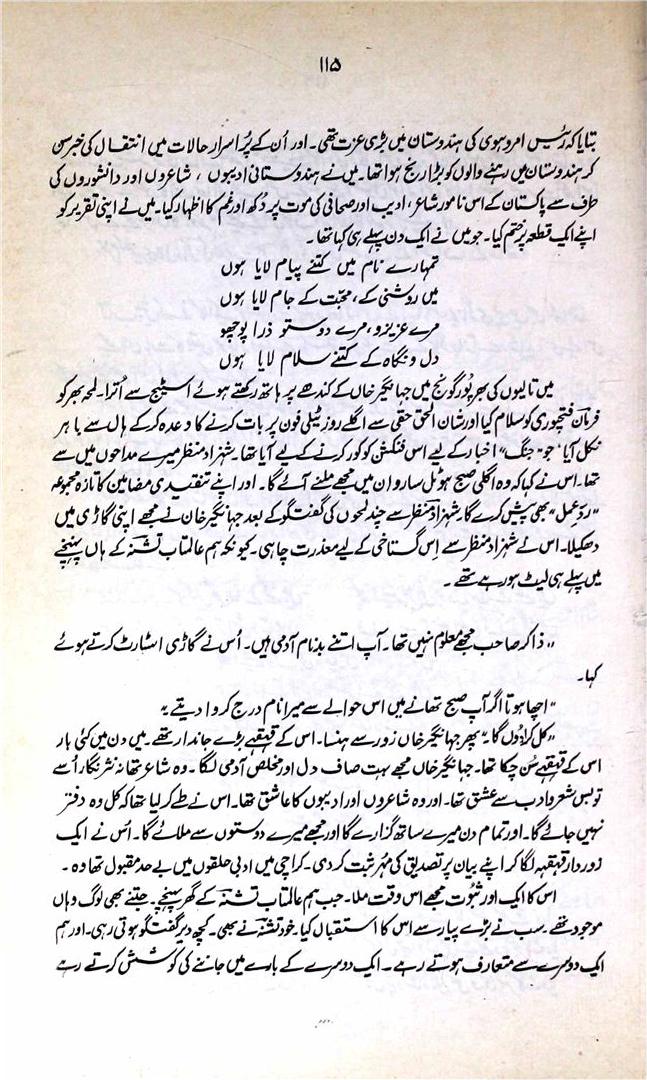 ۱۱۵
بتایا کہ رئیس امروہوی کی ہندوستان میں بڑی عزت تھی۔ اور اُن کے پُراسرار حالات میں انتقال کی خبر سن
کر ہندوستان میں رہنے والوں کو بڑا رنج ہوا تھا۔ میں نے ہندوستانی ادیبوں ، شاعروں اور دانشوروں کی
طرف سے پاکستان کے اس نامور شاعر، ادیب اور صحافی کی موت پر دُکھ اور غم کا اظہار کیا۔ میں نے اپنی تقریر کو
اپنے ایک قطعہ پر ختم کیا۔ جو میں نے ایک دن پہلے ہی کہا تھا۔
تمہارے نام میں کتنے پیام لایا ہوں
میں روشنی کے، محبّت کے جام لایا ہوں
مرے عزیزو، مرے دوستو ذرا پوچھو
دل و نگاہ کے کتنے سلام لایا ہوں
میں تالیوں کی بھرپُور گونج میں جہانگیر خاں کے کندھے پر ہاتھ رکھتے ہوئے اسٹیج سے اُترا۔ لمحہ بھر کو
فرمان فتحپوری کو سلام کیا اور شان الحق حقی سے اگلے روز ٹیلی فون پر بات کرنے کا وعدہ کر کے ہال سے باہر
نکل آیا، جو "جنگ" اخبار کے لیے اس فنکشن کو کور کرنے کے لیے آیا تھا۔ شہزاد منظر میرے مداحوں میں سے
تھا۔ اس نے کہا کہ وہ اگلی صبح ہوٹل ساروان میں مجھے ملنے آئے گا۔ اور اپنے تنقیدی مضامین کا تازہ مجموعہ
"ردِ عمل" بھی پیش کرے گا۔ شہزاد منظر سے چند لمحوں کی گفتگو کے بعد جہانگیر خان نے مجھے اپنی گاڑی میں
دھکیلا۔ اس نے شہزاد منظر سے اِس گستاخی کے لیے معذرت چاہی۔ کیونکہ ہم عالمتاب تشنہؔ کے ہاں پہنچنے
میں پہلے ہی لیٹ ہو رہے تھے ۔
"ذاکر صاحب مجھے معلوم نہیں تھا۔ آپ اتنے بدنام آدمی ہیں۔ اُس نے گاڑی اسٹارٹ کرتے ہوئے
کہا۔
"اچھا ہوتا اگر آپ صبح تھانے میں اس حوالے سے میرا نام درج کروا دیتے"
"کل کرا دُوں گا"۔ پھر جہانگیر خاں زور سے ہنسا۔ اس کے قہقہے بڑے جاندار تھے۔ میں دن میں کئی بار
اس کے قہقہے سُن چکا تھا۔ جہانگیر خاں مجھے بہت صاف دل اور مخلص آدمی لگا۔ وہ شاعر تھا نہ نثر نگار اُسے
تو بس شعر و ادب سے عشق تھا۔ اور وہ شاعروں اور ادیبوں کا عاشق تھا۔ اس نے طے کر لیا تھا کہ کل وہ دفتر
نہیں جائے گا۔ اور تمام دن میرے ساتھ گزارے گا اور مجھے میرے دوستوں سے ملائے گا۔ اُس نے ایک
زوردار قہقہہ لگا کر اپنے بیان پر تصدیق کی مُہر ثبت کر دی۔ کراچی میں ادبی حلقوں میں بے حد مقبول تھا وہ۔
اس کا ایک اور ثبوُت مجھے اس وقت ملا۔ جب ہم عالمتاب تشنہؔ کے گھر پہنچے۔ جتنے بھی لوگ وہاں
موجود تھے۔ سب نے بڑے پیار سے اس کا استقبال کیا۔ خود تشنہؔ نے بھی۔ کچھ دیر گفتگو ہوتی رہی۔ اور ہم
ایک دوسرے سے متعارف ہوتے رہے۔ ایک دوسرے کے بارے میں جاننے کی کوشش کرتے رہے